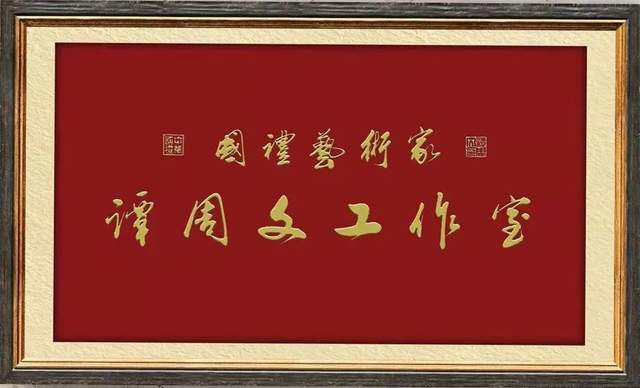 國禮藝術家
譚周文工作室